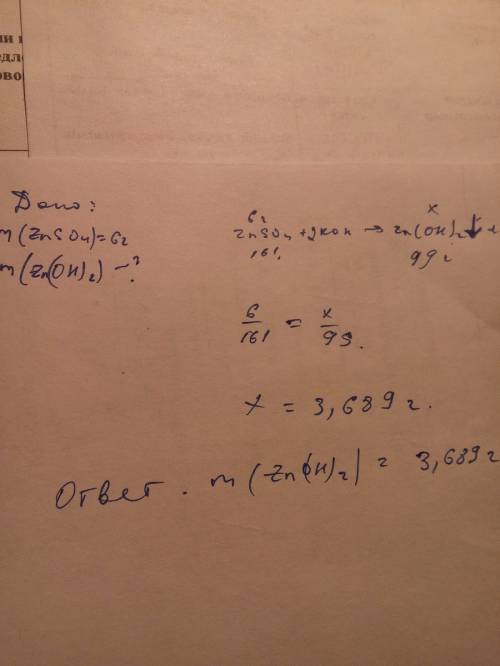 Дано:
m(ZnSO4)=6г
m(Zn(OH)2) -?
6г x
ZnSO4 + 2KOH → Zn(OH)2↓ +
161 99г
6/161 = x/99.
x = 3,689 г.
Ответ. m(Zn(OH)2) = 3,689 г